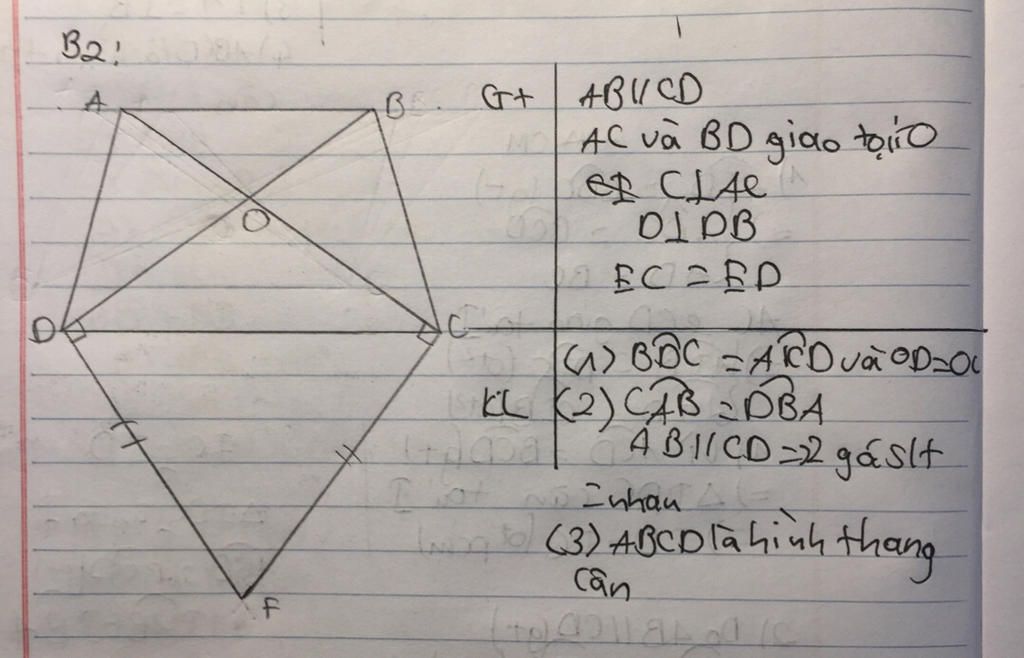 B2:
A
B
O
D
C
F
Gt
AB//CD
AC và BD giao tại O
C⊥AC
D⊥DB
EC = ED
KL
(1) BDC = ACD và OD=OC
(2) CAB = DBA
AB//CD => 2 góc slt
= nhau
(3) ABCD là hình thang
cân